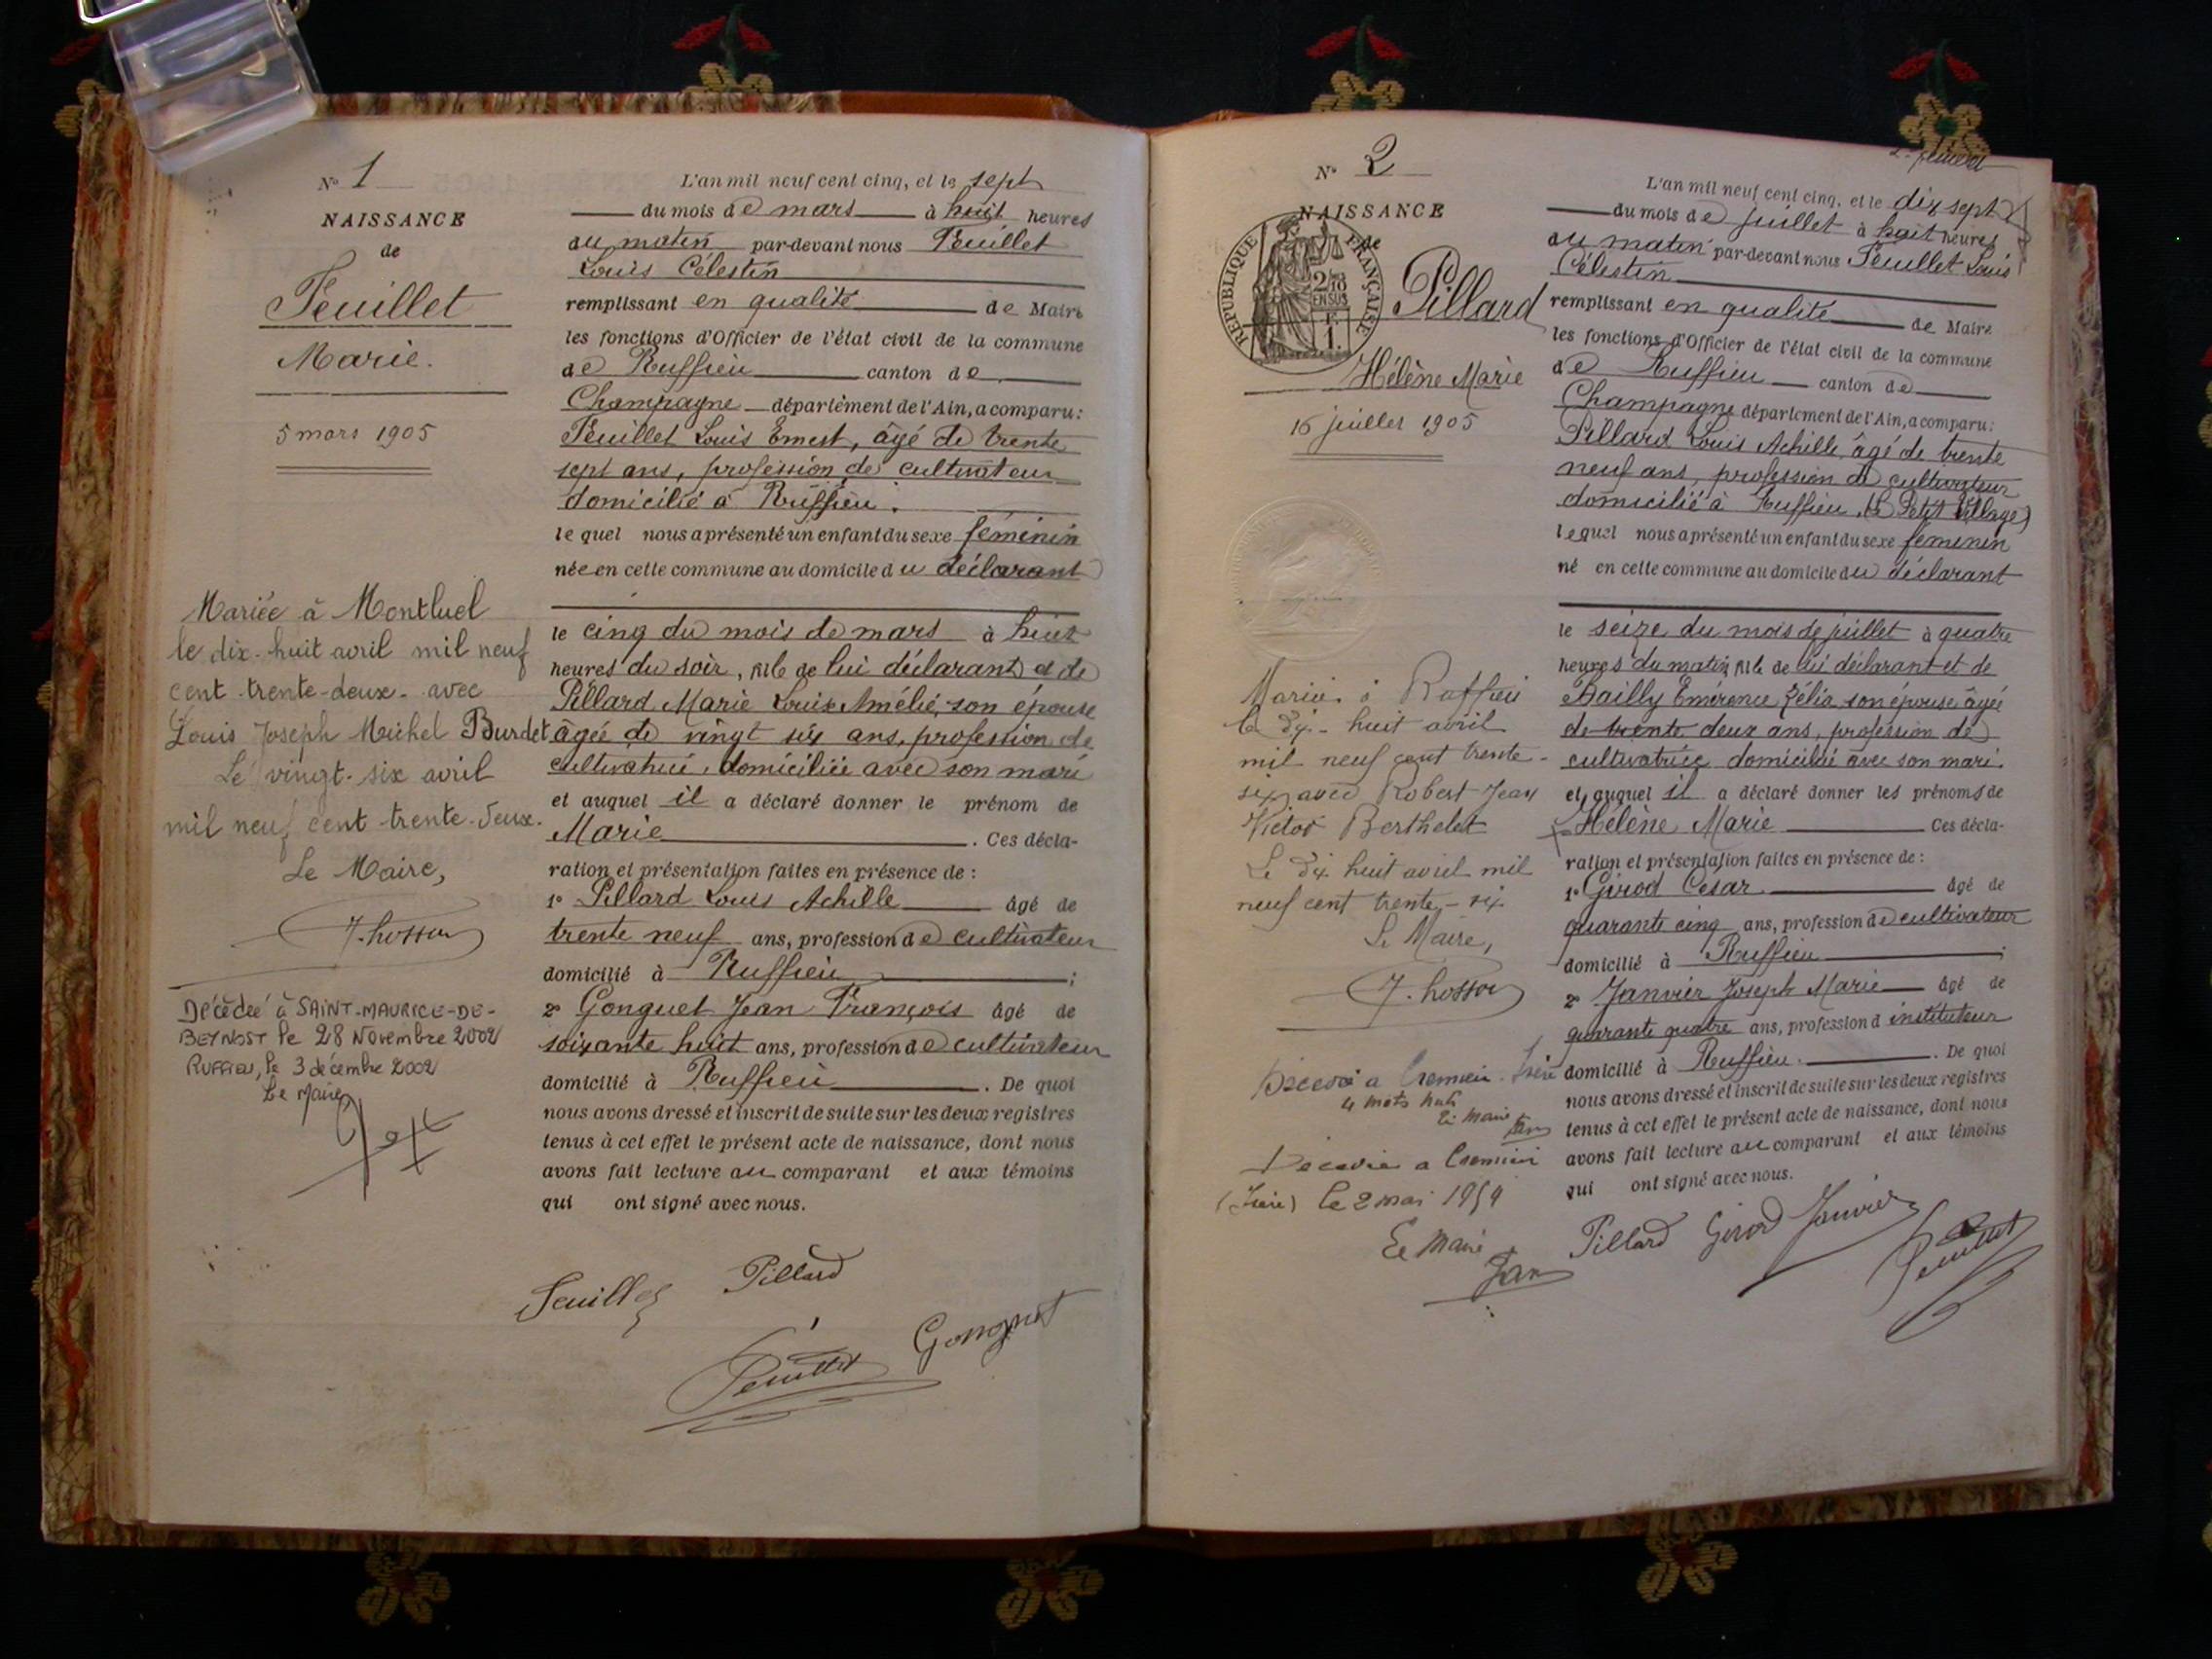 N° 1
NAISSANCE
de
Feuillet
Marie.
5 mars 1905
Mariée à Montluel
le dix-huit avril mil neuf
cent trente-deux avec
Louis Joseph Michel Burdet
Le vingt-six avril
mil neuf cent trente-deux.
Le Maire,
Décédée à SAINT-MAURICE-DE-
BEYNOST le 28 Novembre 2002
RUFFIEU, le 3 décembre 2002
Le Maire
L'an mil neuf cent cinq, et le sept
du mois de mars à huit heures
du matin par-devant nous Feuillet
Louis Célestin
remplissant en qualité de Maire
les fonctions d'Officier de l'état civil de la commune
de Ruffieu canton de
Champagne département de l'Ain, a comparu:
Feuillet Louis Ernest, âgé de trente
sept ans, profession de cultivateur
domicilié à Ruffieu.
lequel nous a présenté un enfant du sexe féminin
née en cette commune au domicile du déclarant
le cinq du mois de mars à huit
heures du soir, fille de lui déclarant et de
Pillard Marie Louise Amélie, son épouse
âgée de vingt six ans, profession de
cultivatrice, domiciliée avec son mari
et auquel il a déclaré donner le prénom de
Marie. Ces décla-
ration et présentation faites en présence de :
1° Pillard Louis Achille âgé de
trente neuf ans, profession de cultivateur
domicilié à Ruffieu ;
2° Gonguet Jean François âgé de
soixante huit ans, profession de cultivateur
domicilié à Ruffieu. De quoi
nous avons dressé et inscrit de suite sur les deux registres
tenus à cet effet le présent acte de naissance, dont nous
avons fait lecture au comparant et aux témoins
qui ont signé avec nous.
Feuillet Pillard
Feuillet Gonguet
N° 2
NAISSANCE
de
REPUBLIQUE FRANÇAISE
2/10
EN SUS
1F.
Pillard
Hélène Marie
16 juillet 1905
Mariée à Ruffieu
le dix-huit avril
mil neuf cent trente-
six avec Robert Jean
Victor Berthelet
Le dix huit avril mil
neuf cent trente-six
Le Maire,
Décédé a Cremieu Isère
4 mots nuls
Le Maire
Décédée a Cremieu
(Isère) le 2 mai 1959
Le Maire
L'an mil neuf cent cinq, et le dix sept
du mois de juillet à huit heures
du matin par-devant nous Feuillet Louis
Célestin
remplissant en qualité de Maire
les fonctions d'Officier de l'état civil de la commune
de Ruffieu canton de
Champagne département de l'Ain, a comparu:
Pillard Louis Achille, âgé de trente
neuf ans, profession de cultivateur
domicilié à Ruffieu, (le Petit Village)
lequel nous a présenté un enfant du sexe féminin
né en cette commune au domicile du déclarant
le seize du mois de juillet à quatre
heures du matin, fille de lui déclarant et de
Bailly Emérence Zélia son épouse âgée
de trente deux ans, profession de
cultivatrice domiciliée avec son mari.
et auquel il a déclaré donner les prénoms de
Hélène Marie Ces décla-
ration et présentation faites en présence de :
1° Girod César âgé de
quarante cinq ans, profession de cultivateur
domicilié à Ruffieu ;
2° Janvier Joseph Marie âgé de
quarante quatre ans, profession d'instituteur
domicilié à Ruffieu. De quoi
nous avons dressé et inscrit de suite sur les deux registres
tenus à cet effet le présent acte de naissance, dont nous
avons fait lecture au comparant et aux témoins
qui ont signé avec nous.
Pillard Girod Janvier
Feuillet